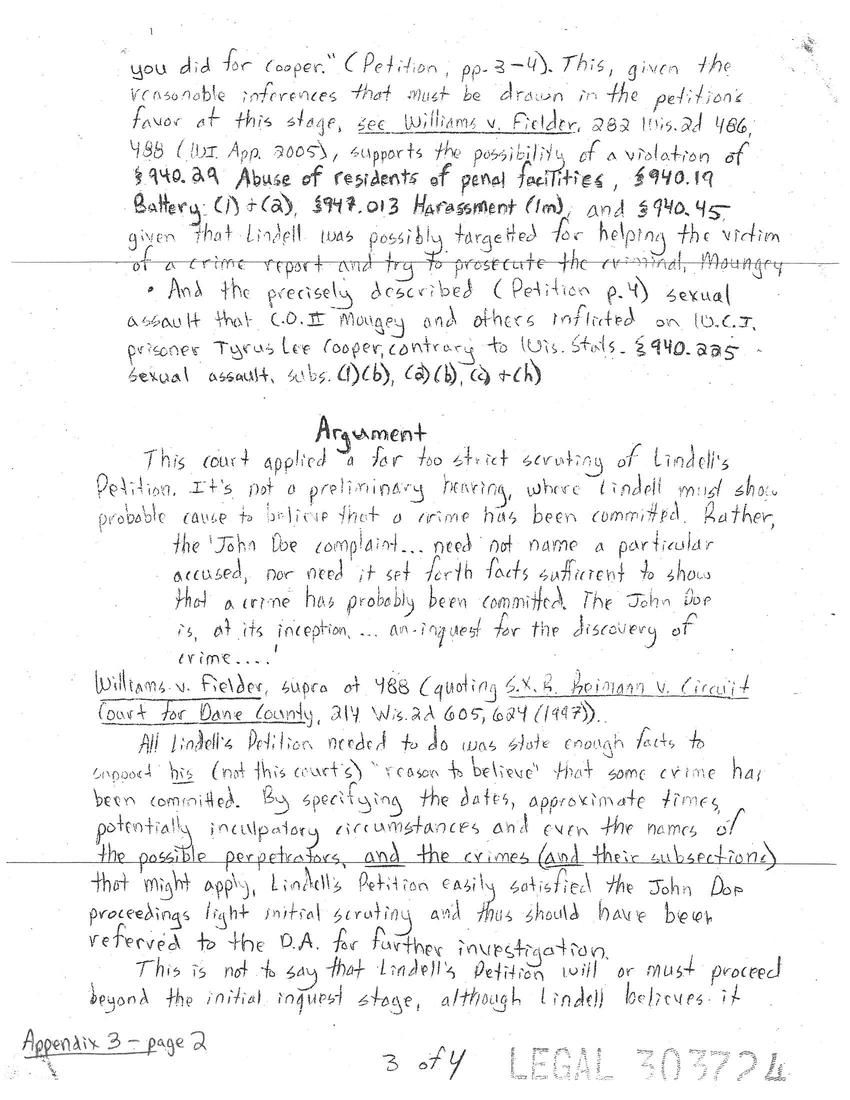 you did for Cooper." (Petition, pp. 3-4). This, given the
reasonable inferences that must be drawn in the petition's
favor at this stage, see Williams v. Fielder, 282 Wis.2d 486,
488 (WI App. 2005), supports the possibility of a violation of
§940.29 Abuse of residents of penal facilities, §940.19
Battery (1)+(2), §947.013 Harassment (1m), and §940.45
given that Lindell was possibly targetted for helping the victim
of a crime report and try to prosecute the criminal, Moungey
• And the precisely described (Petition p.4) sexual
assault that C.O.II Mougey and others inflicted on W.C.I.
prisoner Tyrus Lee Cooper, contrary to Wis. Stats. §940.225
sexual assault, subs. (1)(b), (2)(b), (c)+(h)
Argument
This court applied a far too strict scrutiny of Lindell's
Petition. It's not a preliminary hearing, where Lindell must show
probable cause to believe that a crime has been committed. Rather,
the 'John Doe complaint... need not name a particular
accused, nor need it set forth facts sufficient to show
that a crime has probably been committed. The John Doe
is, at its inception, ... an inquest for the discovery of
crime....'
Williams v. Fielder, supra at 488 (quoting S.X.R. Reimann v. Circuit
Court for Dane County, 214 Wis.2d 605, 624 (1997)).
All Lindell's Petition needed to do was state enough facts to
support his (not this court's) "reason to believe" that some crime has
been committed. By specifying the dates, approximate times,
potentially inculpatory circumstances and even the names of
the possible perpetrators, and the crimes (and their subsections)
that might apply, Lindell's Petition easily satisfied the John Doe
proceedings light initial scrutiny and thus should have been
referred to the D.A. for further investigation.
This is not to say that Lindell's Petition will or must proceed
beyond the initial inquest stage, although Lindell believes it
Appendix 3 - page 2
3 of 4
LEGAL 303724